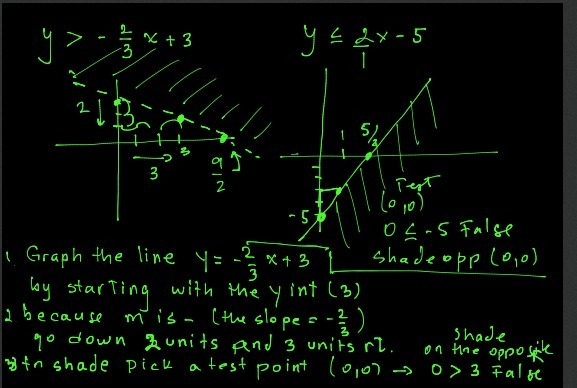 y > - 2/3 x + 3
y ≤ 2/1 x - 5
2
3
3
9/2
1
5/2
-5
Test
(0,0)
0 ≤ -5 False
shade opp (0,0)
1. Graph the line y = -2/3 x + 3
by starting with the y int (3)
2 because m is - (the slope = -2/3)
go down 2 units and 3 units rt.
3 to shade pick a test point (0,0) → 0 > 3 False
shade
on the opposite